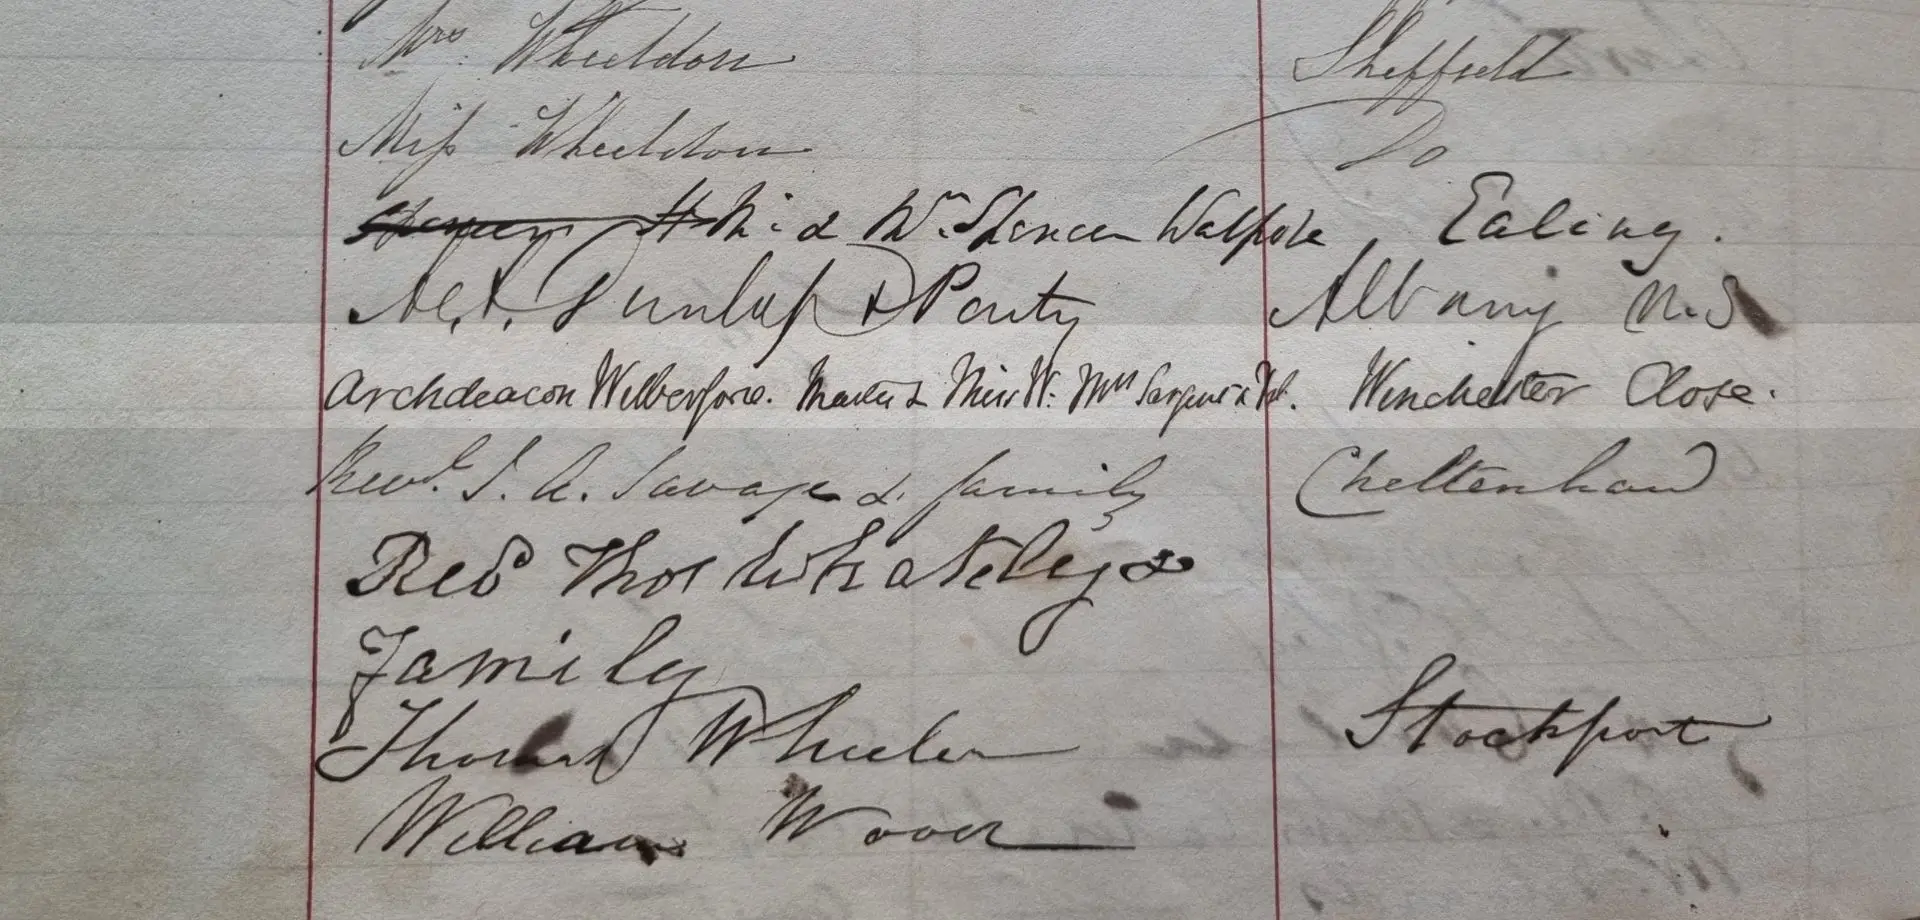 Mrs Wheeldon Sheffield
Miss Wheeldon Do
Mr. & Mrs. Spencer Walpole Ealing.
Dunlap & Party Albany N.Y
Archdeacon Wilberforce. Master & Miss W. Mrs Sargent Winchester Close.
Revd. J. A. Savage & family Cheltenham
Revd Thos Whateley &
Family
Thomas Wheeler Stockport
William Wood